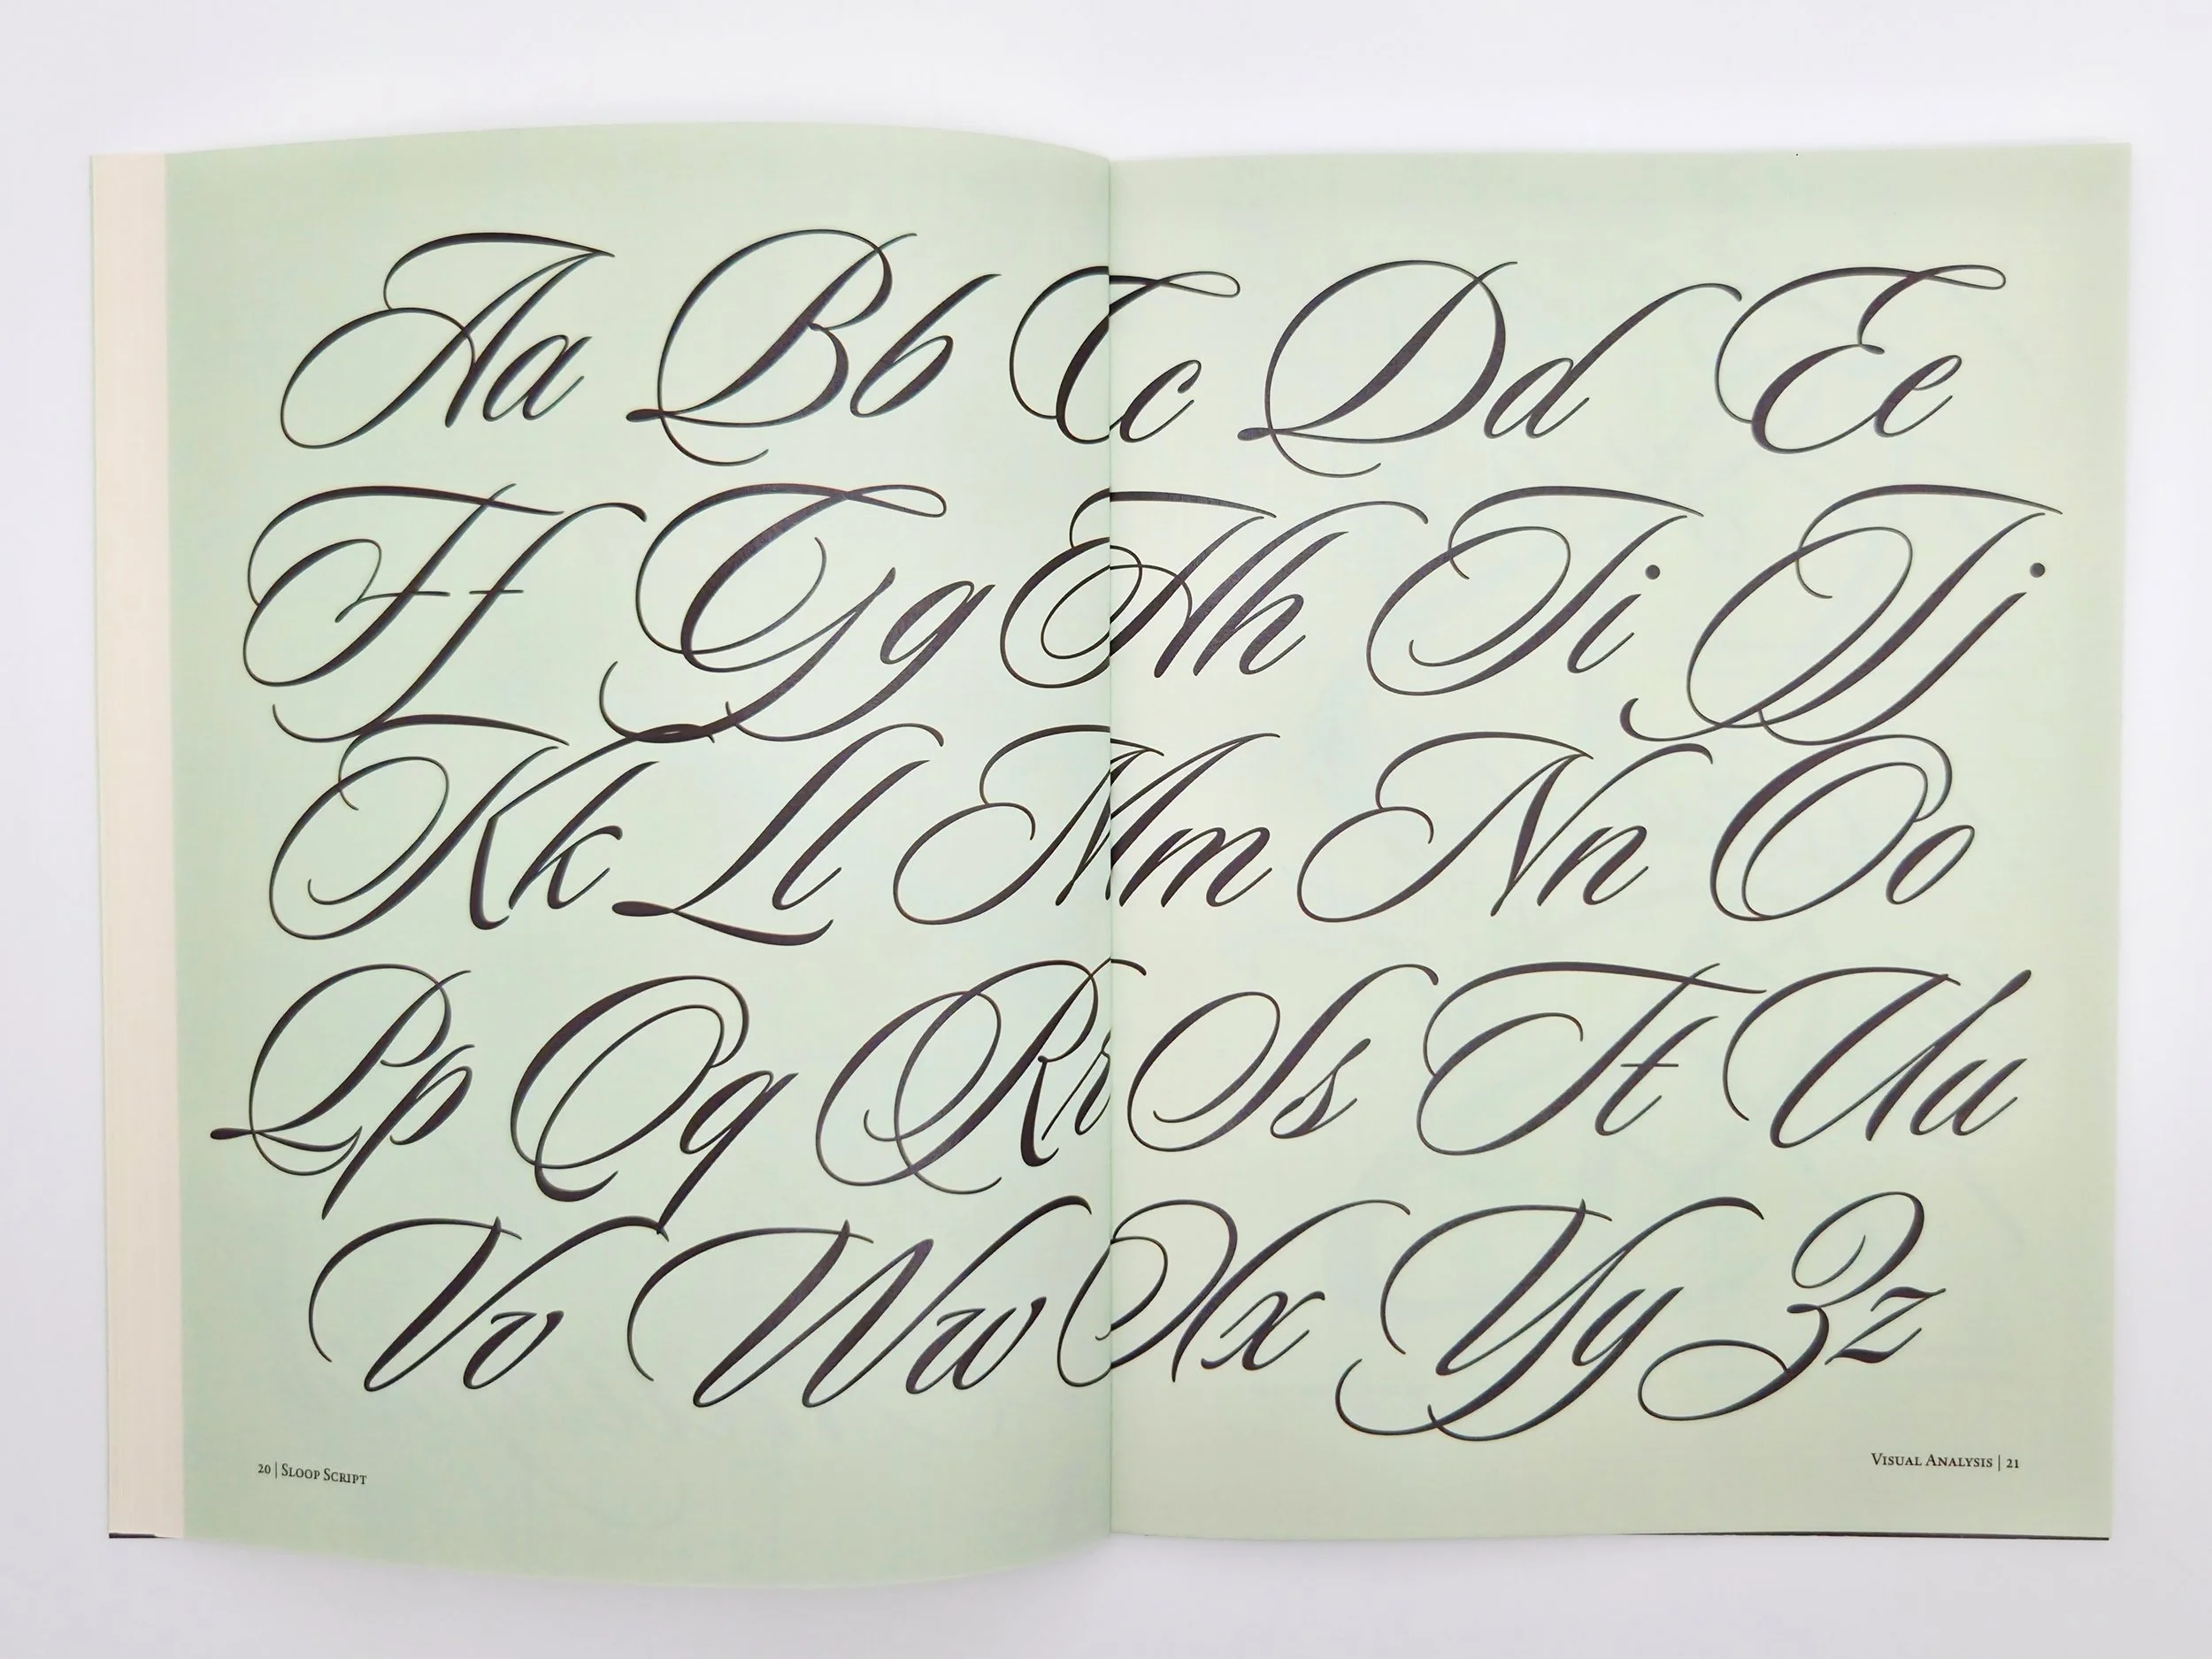 Aa Bb Cc Dd Ee
Ff Gg Hh Ii Jj
Kk Ll Mm Nn Oo
Pp Qq Rr Ss Tt Uu
Vv Ww Xx Yy Zz
20 | Sloop Script
Visual Analysis | 21